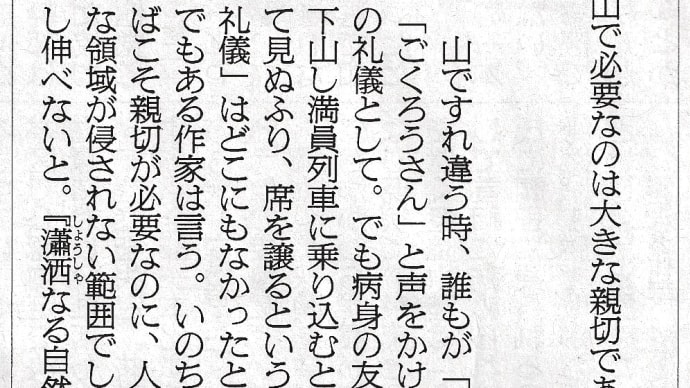 山で必要なのは大きな親切であ
山ですれ違う時、誰もが「
「ごくろうさん」と声をかけ
の礼儀として。でも病身の友
下山し満員列車に乗り込むと
て見ぬふり、席を譲るという
礼儀」はどこにもなかったと
でもある作家は言う。いのち
ばこそ親切が必要なのに、人
な領域が侵されない範囲でし
し伸べないと。『瀟洒なる自然
しょうしゃ